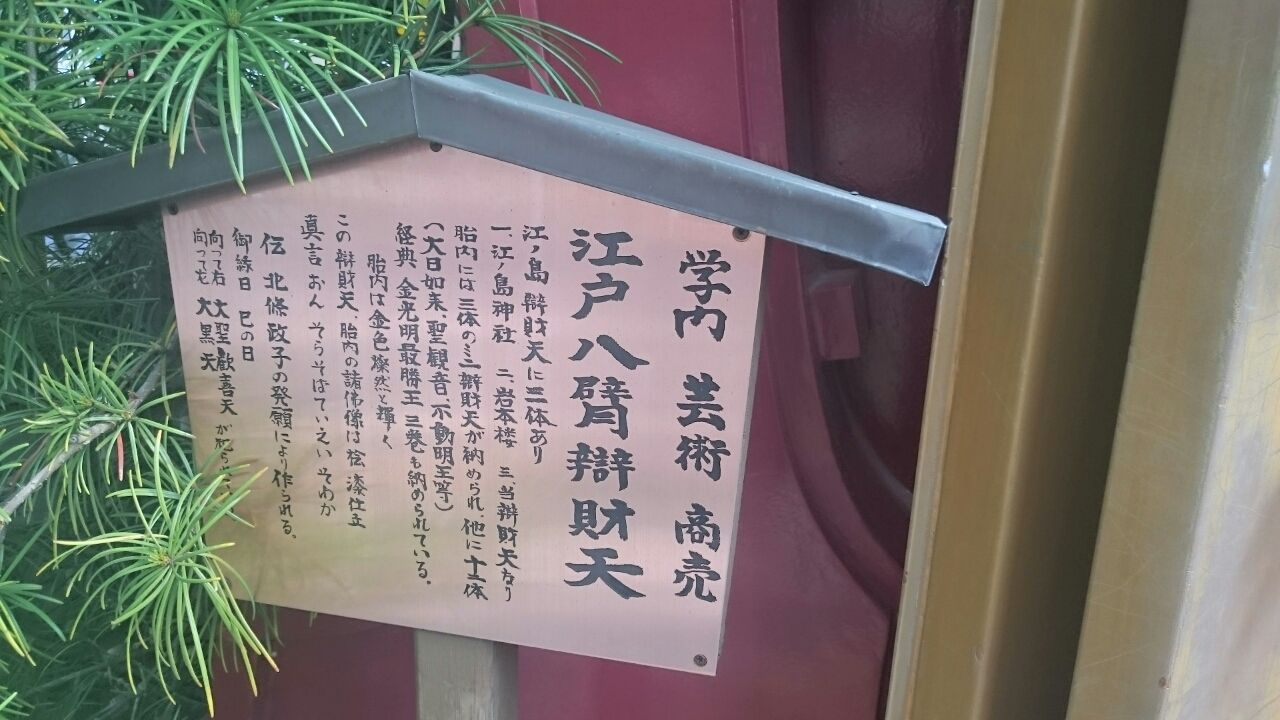 学内 芸術 商売
江戸八臂辯財天
江ノ島 辯財天に三体あり
一、江ノ島神社 二、岩本楼 三、当辯財天なり
胎内には三体のミニ辯財天が納められ、他に十二体
(大日如来、聖観音、不動明王等)
経典 金光明最勝王 三巻も納められている。
胎内は金色燦然と輝く
この辯財天、胎内の諸佛像は桧、漆仕立
真言 おん そらそばていえい そわか
伝 北條政子の発願により作られる。
御縁日 巳の日
向って右 大聖歓喜天
向って左 大黒天